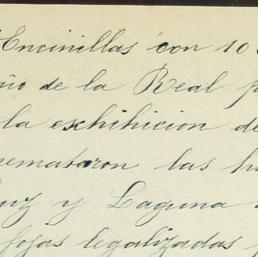 Encinillas con 10
de la Real
la exhihicion de
remataron las
y Laguna
fojas legalizadas